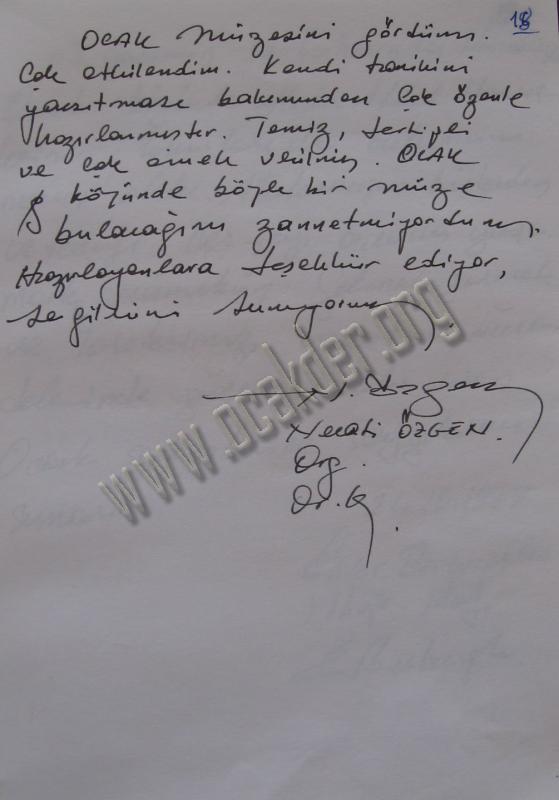 18
OCAK Müzesini gördüm.
Çok etkilendim. Kendi tarihini
yansıtması bakımından çok özenle
hazırlanmıştır. Temiz, tertipli
ve çok emek verilmiş. OCAK
köyünde böyle bir müze
bulacağımı zannetmiyordum.
Hazırlayanlara teşekkür ediyor,
sevgilerimi sunuyorum.
N. Özgen
Necati ÖZGEN.
Org.
Or. K.
www.ocakder.org